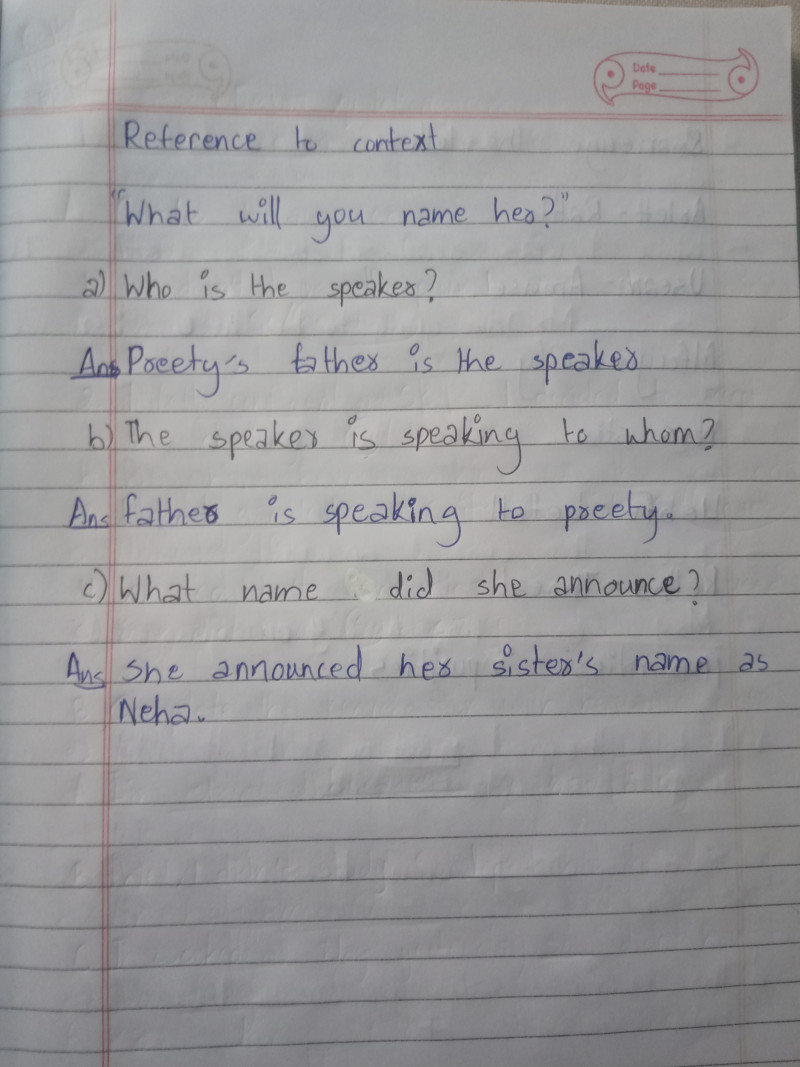 Date
Page
Reference to context
"What will you name her?"
a) Who is the speaker?
Ans Preety's father is the speaker
b) The speaker is speaking to whom?
Ans father is speaking to preety.
c) What name did she announce?
Ans She announced her sister's name as
Neha.